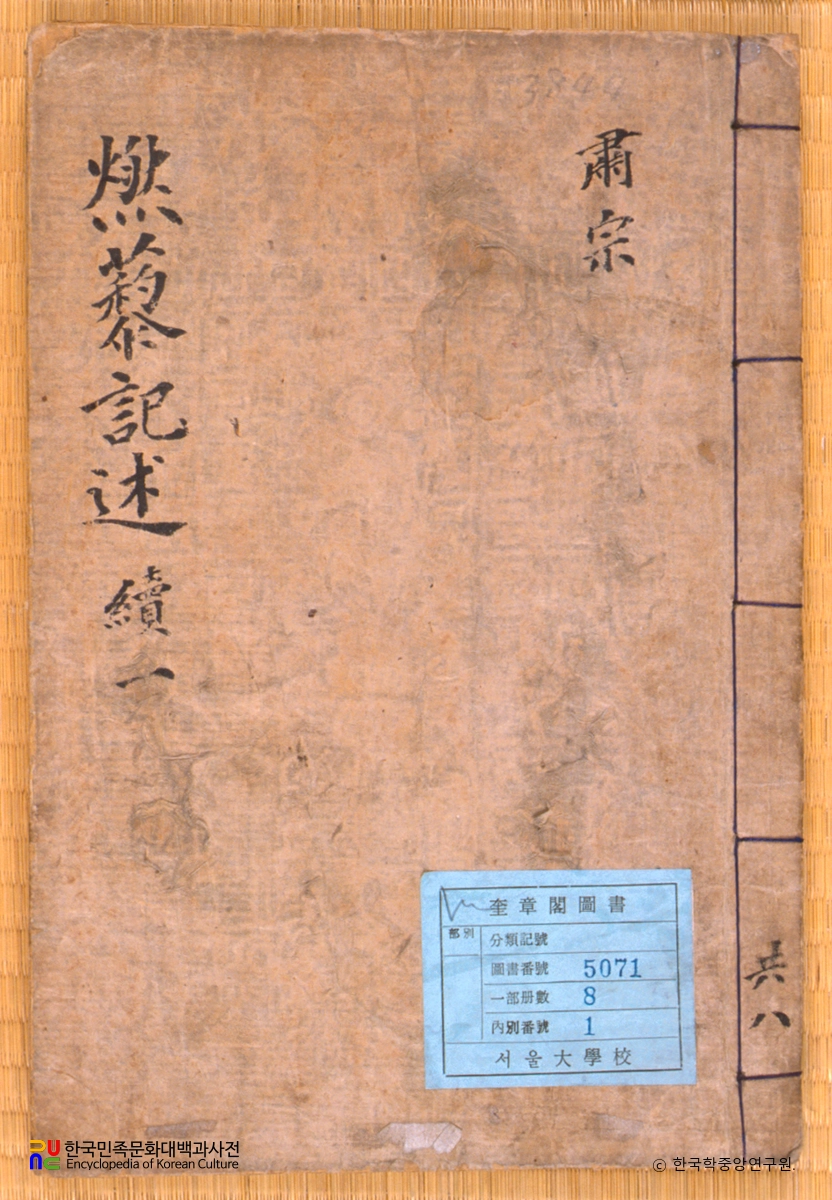 肅宗
燃藜記述 續 一
共八
奎章閣圖書
部別
分類記號
圖書番號 5071
一部册數 8
內別番號 1
서울大學校
한국민족문화대백과사전
Encyclopedia of Korean Culture
© 한국학중앙연구원.